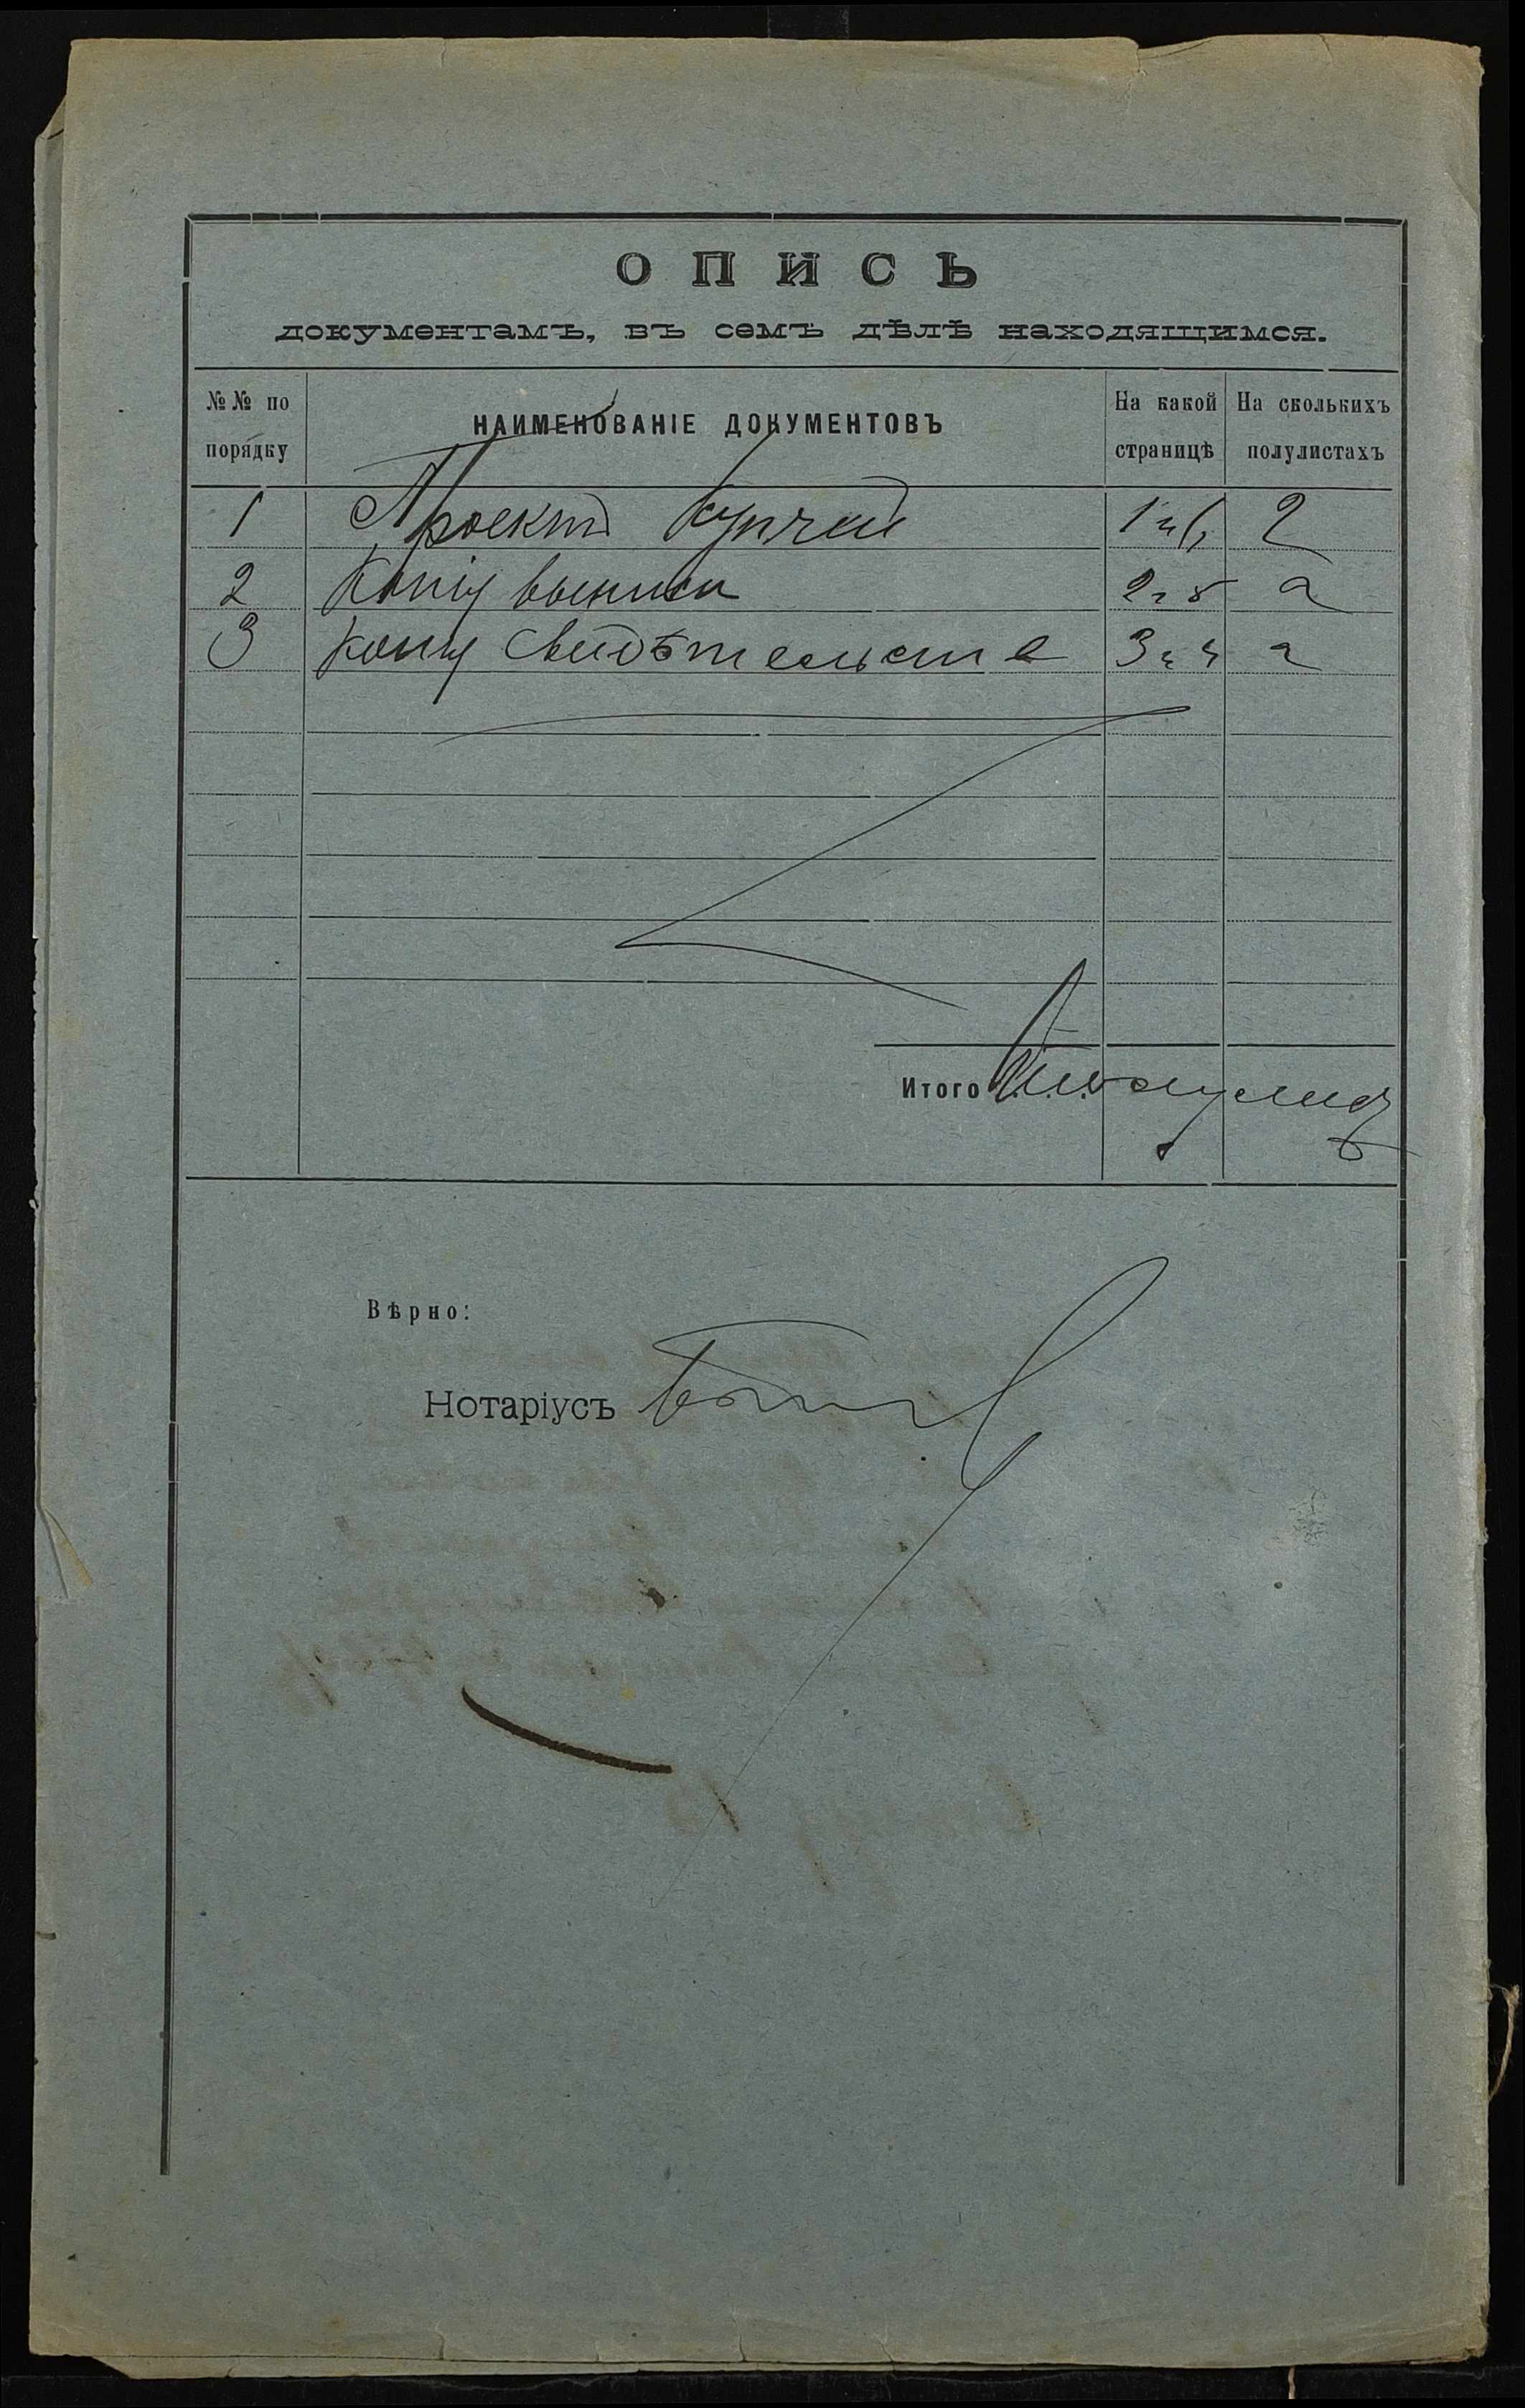 ОПИСЬ
документамъ, въ семъ дѣлѣ находящимся.
№№ по порядку
НАИМЕНОВАНІЕ ДОКУМЕНТОВЪ
На какой страницѣ
На сколькихъ полулистахъ
1 Проектъ купчей 2
2 Копія выписи 2
3 Копія свидѣтельства 2
Итого
Вѣрно:
Нотаріусъ